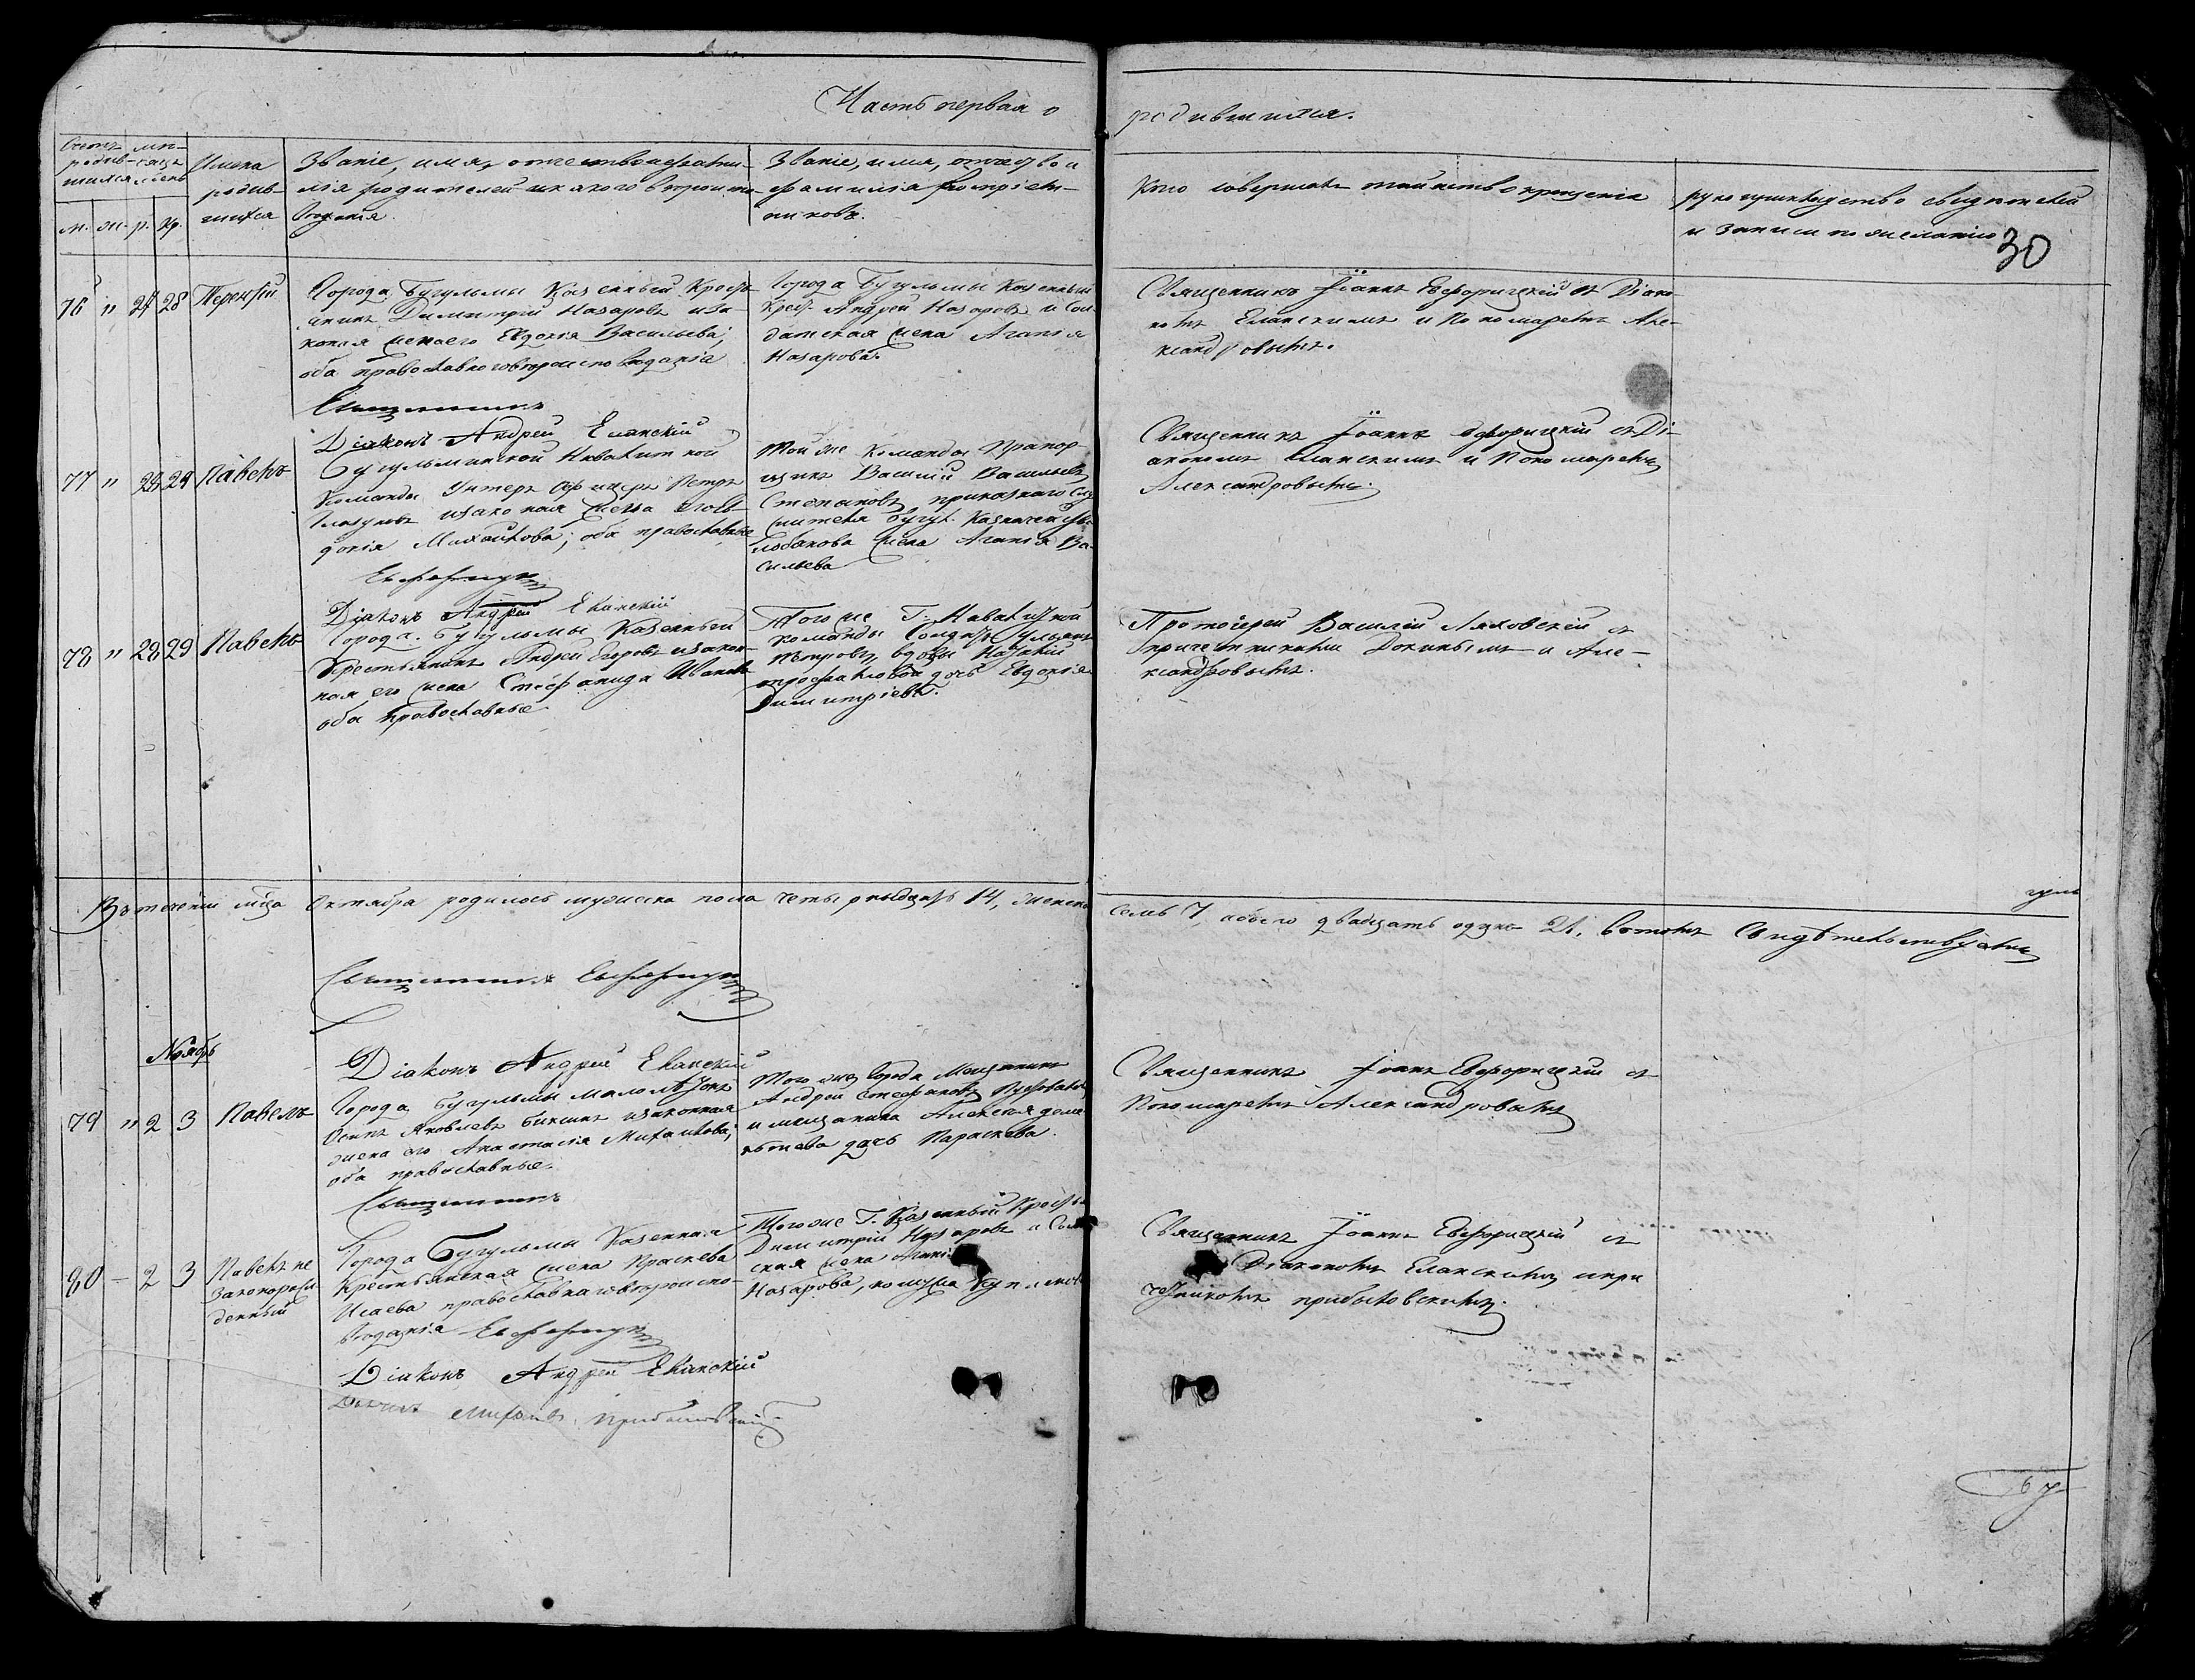 Часть первая о родившихся.
Счетъ родившихся
м. ж.
мѣсяцъ и день
р. кр.
Имена
родив-
шихся
Званіе, имя, отчество и фами-
лія родителей и какого вѣроиспо-
вѣданія.
Званіе, имя, отчество и
фамилія воспріем-
никовъ.
Кто совершалъ таинство крещенія
рукоприкладство свидѣтелей
и записи по желанію
30
76 " 24 28 Терентій
Города Бугульмы Казенный Кресть-
янинъ Димитрій Назаровъ и за-
конная жена его Евдокія Васильева;
оба православнаго вѣроисповѣданія
Города Бугульмы Казенный
Крест. Андрей Назаровъ и Сол-
датская жена Агапія
Назарова.
Священникъ Іоаннъ Евфорицкій съ Діако-
номъ Еланскимъ и Пономаремъ Але-
ксандровымъ.
Священникъ
Діаконъ Андрей Еланскій
77 " 24 29 Павелъ
Бугульминской Инвалидной
Команды Унтеръ Офицеръ Петръ
и законная жена его Ев-
докія Михайлова; оба православные
Той же Команды Прапор-
щикъ Василій Васильевъ
Степановъ, приказнаго слу-
жителя Бугул. Казначейства
жена Агапія Ва-
сильева
Священникъ Іоаннъ Евфорицкій съ Ді-
акономъ Еланскимъ и Пономаремъ
Александровымъ.
Евфорицкій
Діаконъ Андрей Еланскій
78 " 28 29 Павелъ
Города Бугульмы Казенный
Крестьянинъ Андрей Егоровъ и закон-
ная его жена Стефанида Иванова
оба православные
Того же Г. Инвалидной
команды Солдатъ
Петровъ, вдовы
дочь Евдокія
Димитріева.
Протоіерей Василій Ляховскій съ
причетниками и Але-
ксандровымъ.
Въ теченіи мѣсяца Октября родилось мужеска пола четырнадцать 14, женска
семь 7, а всего двадцать одинъ 21. въ томъ свидѣтельствуемъ
Священникъ Евфорицкій
Ноябрь
Діаконъ Андрей Еланскій
79 " 2 3 Павелъ
Города Бугульмы
Осипъ Яковлевъ и законная
жена его Анастасія Михайлова;
оба православные.
Того же Города Мещанинъ
Андрей Стефановъ
и мещанина Алексея
дочь Параскева.
Священникъ Іоаннъ Евфорицкій съ
Пономаремъ Александровымъ
Священникъ
80 - 2 3 Павелъ не
законорож-
денный
Города Бугульмы Казенная
Крестьянская жена Праскева
Исаева православнаго вѣроиспо-
вѣданія
Того же Г. Казенный Крестья.
Димитрій Назаровъ и Солдат-
ская жена Агапія
Назарова,
Священникъ Іоаннъ Евфорицкій съ
Діакономъ Еланскимъ и при
четникомъ Прибыловскимъ.
Евфорицкій
Діаконъ Андрей Еланскій
Дьячекъ Михаилъ Прибыловскій